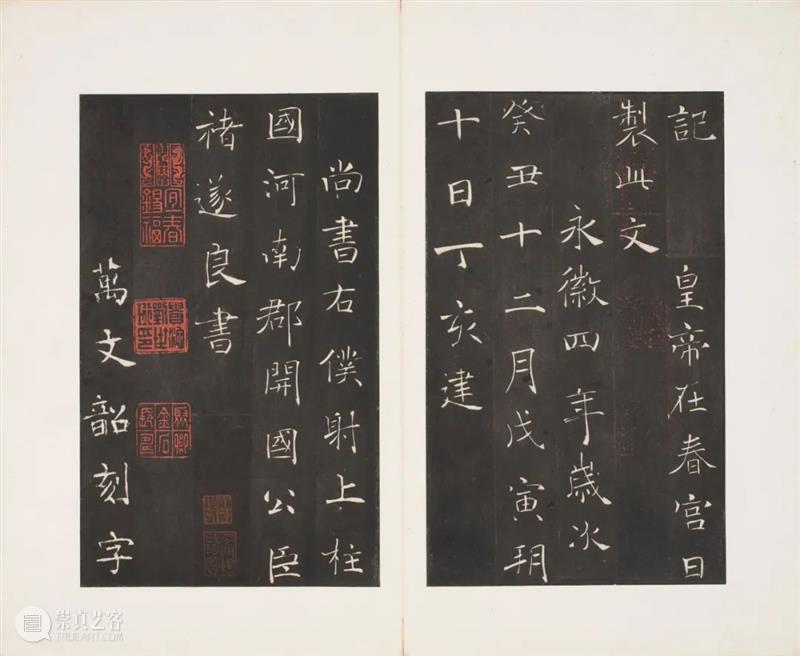 記 皇帝在春宮日
製此文
永徽四年歲次
癸丑十二月戊寅朔
十日丁亥建
尚書右僕射上柱
國河南郡開國公臣
褚遂良書
萬文韶刻字
崇真艺客
TRUEART.COM